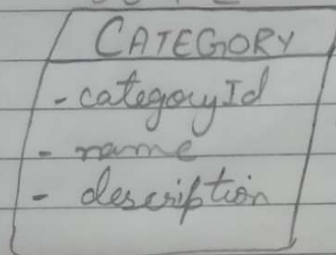 CATEGORY
- categoryId
- name
- description